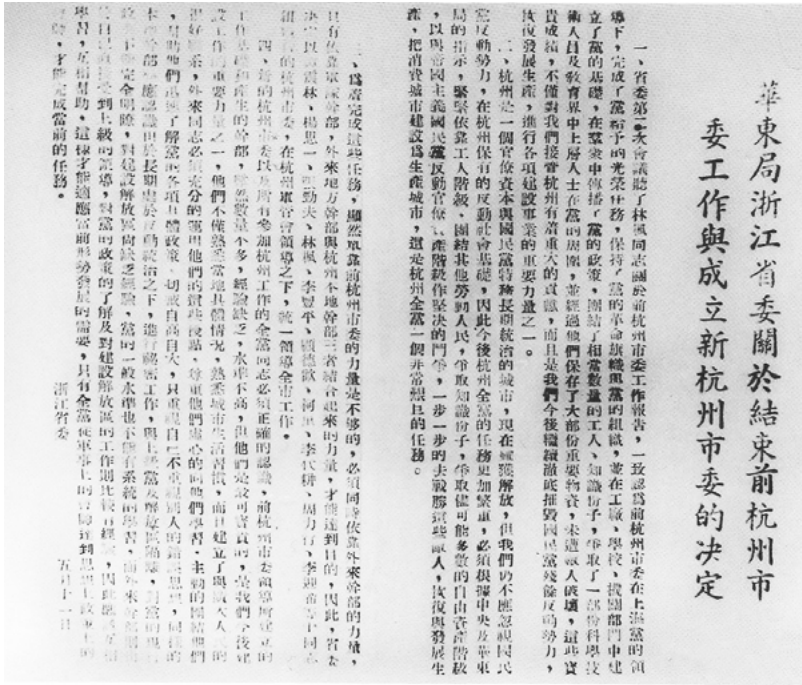 華東局浙江省委關於結束前杭州市
委工作與成立新杭州市委的决定
一、省委第二次會議聽了林楓同志關於前杭州市委工作報告，一致認爲前杭州市委在上海黨的領
導下，完成了黨給予的光荣任務，保持了黨的革命旗幟與黨的組織，並在工廠、學校、機關部門中建
立了黨的基礎，在羣衆中傳播了黨的政策，團結了相當數量的工人、知識份子，爭取了一部份科學技
術人員及敎育界中上層人士在黨的周圍，並經過他們保存了大部份重要物資，未遭敵人破壞，這些寶
貴成績，不僅對我們接管杭州有着重大的貢獻，而且是我們今後繼續澈底摧毀國民黨殘餘反動勢力，
恢復發展生產，進行各項建設事業的重要力量之一。
二、杭州是一個官僚資本與國民黨特務長期統治的城市，現在雖獲解放，但我們仍不應忽視國民
黨反動勢力，在杭州保有的反動社會基礎，因此今後杭州全黨的任務更加繁重，必須根據中央及華東
局的指示，緊緊依靠工人階級，團結其他勞動人民，爭取知識份子，爭取儘可能多數的自由資產階級
，以與帝國主義國民黨反動官僚資產階級作堅决的鬥爭，一步一步的去戰勝這些敵人，恢復與發展生
產，把消費城市建設爲生產城市，這是杭州全黨一個非常艱巨的任務。
三、爲着完成這些任務，顯然單靠前杭州市委的力量是不够的，必須同時依靠外來幹部的力量，
只有依靠軍隊幹部，外來地方幹部與杭州本地幹部三者結合起來的力量，才能達到目的，因此，省委
决定以 震林、楊思一、張勁夫、林楓、李豐平、顧德歡、 、李代耕、周力行、李迎希等十同志
組 的杭州市委，在杭州軍管會領導之下，統一領導全市工作。
四、新的杭州市委以及所有參加杭州工作的全黨同志必須正確的認識，前杭州市委領導所建立的
工作基礎和產生的幹部，雖然數量不多，經驗缺乏，水準不高，但他們是最可寶貴的，是我們今後建
設工作的重要力量之一，他們不僅熟悉當地具體情况，熟悉城市生活習慣，而且建立了與廣大人民的
很好 係，外來同志必須充分的運用他們的這些優點，尊重他們虛心的向他們學習，主動的團結他們
，幫助他們迅速了解黨的各項具體政策，切戒自高自大，只重視自己不重視別人的錯誤思想，同樣的
本地幹部 應認識由於長期處於反動統治之下，進行祕密工作，與上級黨及解放區隔離，對黨的現行
政策不能完全明瞭，對建設解放區尚缺乏經驗，黨的一般水準也不能有系統的學習，而外來幹部
接受到上級的領導，對黨的政策的了解及對建設解放區的工作則比較有經驗，因此應該互相
學習，互相幫助，這樣才能適應當前形勢發展的需要，只有全黨從軍事上的會師達到思想上政策上的
會師，才能完成當前的任務。
浙江省委
五月十一日